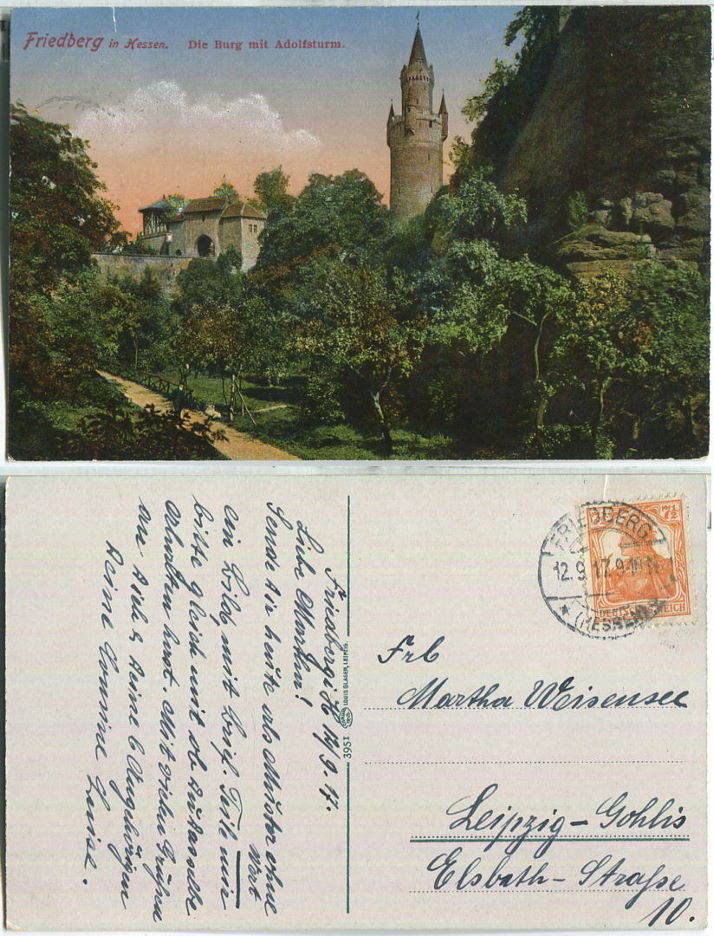 Friedberg in Hessen. Die Burg mit Adolfsturm.
FRIEDBERG
12.9.17.9-10V.
(HESSEN)
7½
DEUTSCHES REICH
Frl
Martha Weisensee
Leipzig-Gohlis
Elsbeth-Straße
10.
395I LOUIS GLASER, LEIPZIG.
Friedberg i/H 12/9. 17.
Liebe Martha!
Sende dir heute als Muster ohne
Wert
ein Bild mit Brief. Teile mir
bitte gleich mit ob du dasselbe
erhalten hast. Mit vielen Grüßen
an dich & deine l. Angehörigen
deine Cousine Luise.